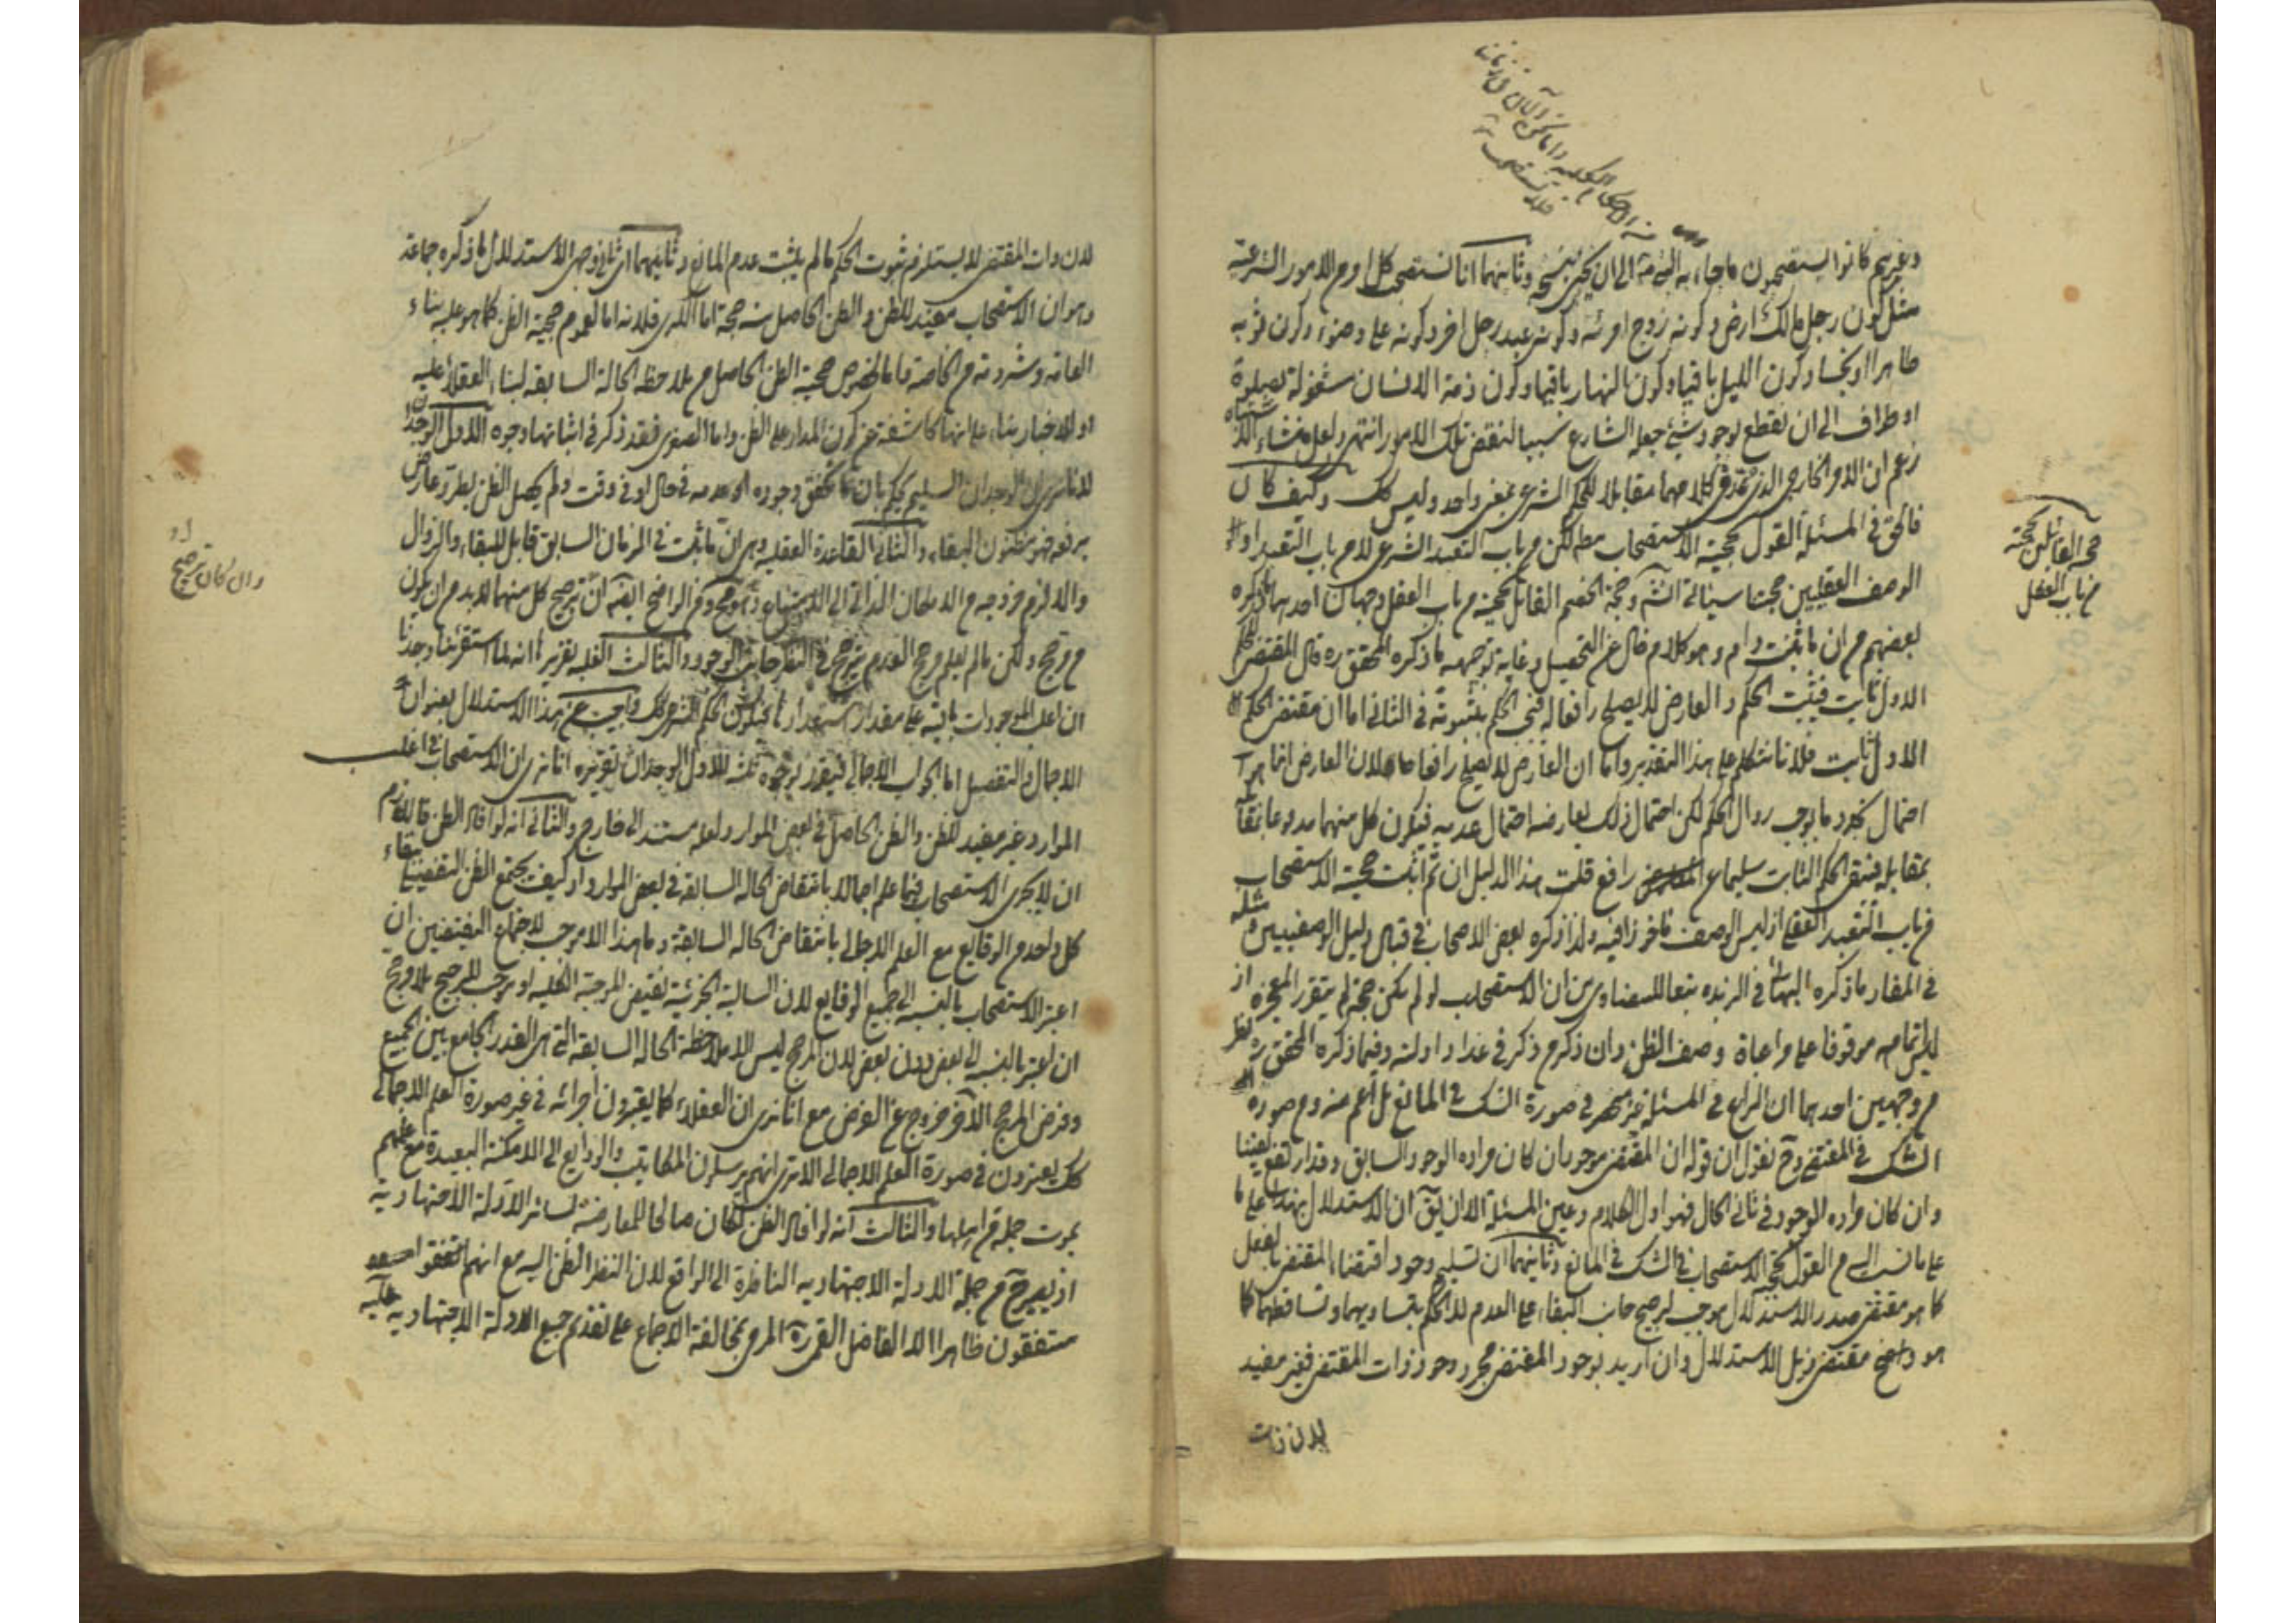 وغيرهم كانوا يستصحبون ما جاء به النبي ص الى ان يجئ نسخه وثانيهما انا نستصحب كل امر من الامور الشرعية
مثل كون رجل مالك ارض وكونه زوج امرئة وكونه عبد رجل اخر وكونه على وضوء وكون ثوبه
طاهرا او نجسا وكون الليل باقيا وكون النهار باقيا وكون ذمة الانسان مشغولة بصلوة
او طواف الى ان يقطع بوجود شئ جعله الشارع سببا لنقض تلك الامور انتهى ولعل منشاء اشتباه
زعم ان الامر الخارجي الذي في كلامهما مقابلا للحكم الشرعي بمعنى واحد وليس كك وكيف كان
فالحق في المسئلة القول بحجية الاستصحاب مط لكن من باب التعبد الشرعي لا من باب التعبد او
الوصف العقليين حجتنا سيأتي انش وحجة الخصم القائل بحجيته من باب العقل وجهان احدهما ما ذكره
بعضهم من ان ما ثبت دام وهو كلام خال عن التحصيل وغاية توجيهه ما ذكره المحقق ره قال المقتضي للحكم
الاول ثابت فيثبت الحكم والعارض لا يصلح رافعا له فيجب الحكم بثبوته في الثاني اما ان مقتضي الحكم
الاول ثابت فلانا نتكلم على هذا التقدير واما ان العارض لا يصلح رافعا فلان العارض انما هو
احتمال تجدد ما يوجب زوال الحكم لكن احتمال ذلك يعارضه احتمال عدمه فيكون كل منهما مدفوعا
بمقابله فيبقى الحكم الثابت سليما عن رافع قلت هذا الدليل ان تم اثبت حجية الاستصحاب
من باب التعبد العقلي اذ ليس الوصف مأخوذا فيه ولذا ذكره بعض الاصحاب في قبال دليل الوصفيين ومثله
في المفاد ما ذكره البهائي في الزبده تبعا للبيضاوي من ان الاستصحاب لو لم يكن حجة لم يتقرر المعجزة اذ
ليس اتمامه موقوفا على مراعاة وصف الظن وان ذكره من ذكر في عداد ادلته وفيما ذكره المحقق ره نظر
من وجهين احدهما ان النزاع في المسئلة غير منحصر في صورة الشك في المانع بل اعم منه ومن صورة
الشك في المقتضي وح نقول ان قوله ان المقتضي موجود ان كان مراده الوجود السابق
وان كان مراده الوجود في ثاني الحال فهو اول الكلام وعين المسئلة الا ان يق ان الاستدلال بهذا على ما
على ما نسب اليه من القول بحجية الاستصحاب في الشك في المانع وثانيهما ان تسليم وجود اقتضاء المقتضي بالفعل
كما هو مقتضى صدر الاستدلال موجب لترجيح جانب البقاء على العدم لا الحكم بتساويهما وتساقطهما كما
هو واضح مقتضى ذيل الاستدلال وان اريد بوجود المقتضي مجرد وجود ذات المقتضي فغير مفيد
لان ذات
حجة القائلين بحجيته
من باب العقل
لان ذات المقتضي لا يستلزم ثبوت الحكم ما لم يثبت عدم المانع وثانيهما اي ثاني وجهي الاستدلال ما ذكره جماعة
وهو ان الاستصحاب مفيد للظن والظن الحاصل منه حجة اما الكبرى فلانه اما لعموم حجية الظن كما هو عليه بناء
العامه وشرذمة من الخاصة واما لخصوص حجية الظن الحاصل من ملاحظة الحالة السابقة لبناء العقلاء عليه
او للاخبار بناء على انها كاشفة عن كون المدار على الظن واما الصغرى فقد ذكر في اثباتها وجوه الاول الوجدان
لانا نرى ان الوجدان السليم يحكم بان ما تحقق وجوده او عدمه في حال او في وقت ولم يحصل الظن بطرو عارض
يرفعه فهو مظنون البقاء والثاني القاعدة العقليه وهي ان ما ثبت في الزمان السابق قابل للبقاء والزوال
والا لزم خروجه من الامكان الذاتي الى الامتناع ومن الواضح ايضا ان ترجيح كل منهما لا بد من ان يكون
من مرجح ولكن ما لم يعلم مرجح العدم يترجح في النظر جانب الوجود والثالث الغلبه تقريره انه لما استقرئنا وجدنا
ان اغلب الموجودات باقية على مقدار استعدادها فيكون الحكم الشرعي كك واجيب عن هذا الاستدلال بعنوان
الاجمال والتفصيل اما الجواب الاجمالي فيقرر بوجوه ثلثه الاول الوجدان تقريره انا نرى ان الاستصحاب في اغلب
الموارد غير مفيد للظن والظن الحاصل في بعض الموارد لعله مستند الى خارج والثاني انه لو افاد الظن فاللازم
ان لا يجرى الاستصحاب فيما علم اجمالا بانتقاض الحاله السابقة في بعض الموارد اذ كيف يجتمع الظن التفصيلي ببقاء
كل واحد من الوقايع مع العلم الاجمالي بانتقاض الحاله السابقة وما هذا الا موجب لاجتماع النقيضين ان
اعتبر الاستصحاب بالنسبه الى جميع الوقايع لان السالبة الجزئية نقيض الموجبة الكليه او موجب للترجيح بلا مرجح
ان اعتبر بالنسبه الى بعض دون بعض لان المرجح ليس الا ملاحظة الحاله السابقة التي هي القدر الجامع بين الجميع
وفرض المرجح الاخر خروج عن الفرض مع انا نرى ان العقلاء كما يعتبرون اجرائه في غير صورة العلم الاجمالي
كك يعتبرون في صورة العلم الاجمالي الا ترى انهم يرسلون المكاتيب والودايع الى الامكنة البعيدة مع علمهم
بموت جملة من اهلها والثالث انه لو افاد الظن لكان صالحا للمعارضة لسائر الادلة الاجتهادية
اذ يصير ح من جملة الادلة الاجتهاديه الناظرة الى الواقع لان النظر الظن اليه مع انهم
متفقون ظاهرا الا الفاضل القمي ره المرمي بمخالفة الاجماع على تقديم جميع الادلة الاجتهاديه عليه
وان كان ترجيح